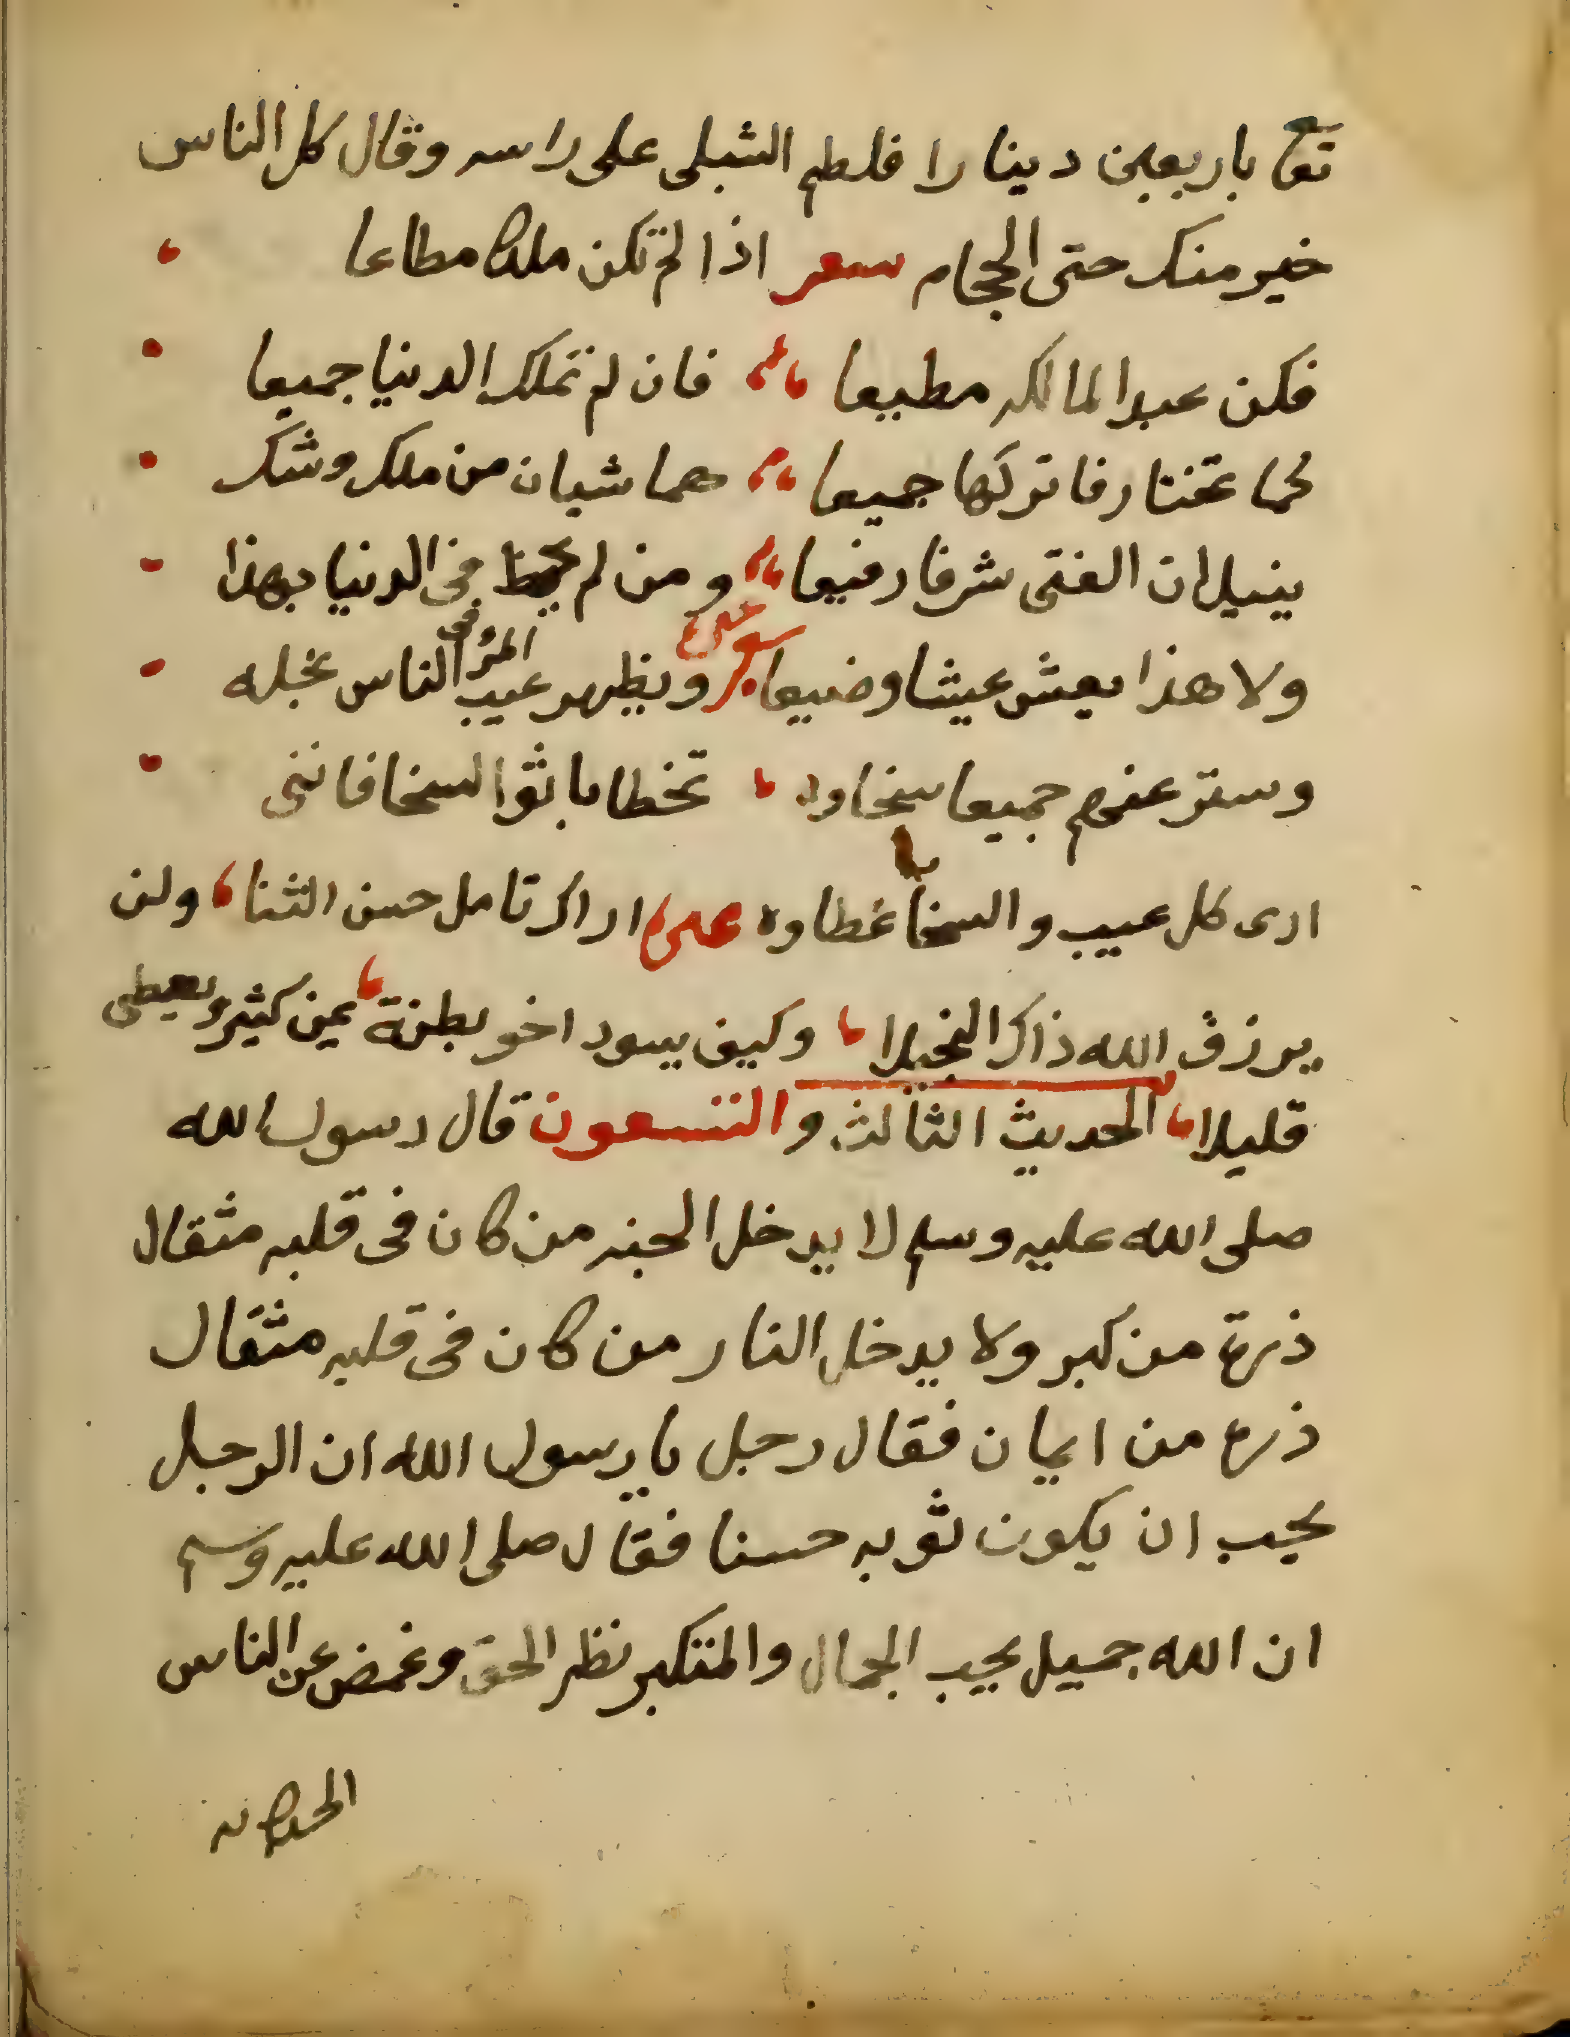 تعا باربعين دينارا فلطم الشبلى على راسه وقال كل الناس
خير منك حتى الحجام سعر اذا لم تكن ملكا مطاعا
فكن عبدا لمالكه مطيعا فان لم تملك الدنيا جميعا
كما تختار فاتركها جميعا هما شيان من ملك وشك
ينيلان الفتى شرفا رفيعا ومن لم يحط فى الدنيا بهذا
ولا هذا يعش عيشا وضيعا سعر غيره ويظهر عيب المرء فى الناس بخله
وستر عنهم جميعا سخاوه تخطا باثوا السخا فاننى
ارى كل عيب والسخا غطاوه غيره اراك تامل حسن الثنا ولن
يرزق الله ذاك البخيلا وكيف يسود اخو بطنة يمن كثير ويعطى
قليلا الحديث الثالث والتسعون قال رسول الله
صلى الله عليه وسلم لا يدخل الجنه من كان فى قلبه مثقال
ذرة من كبر ولا يدخل النار من كان فى قلبه مثقال
ذره من ايمان فقال رجل يا رسول الله ان الرجل
يحب ان يكون ثوبه حسنا فقال صلى الله عليه وسلم
ان الله جميل يحب الجمال والمتكبر نظر الحق وغمض عن الناس